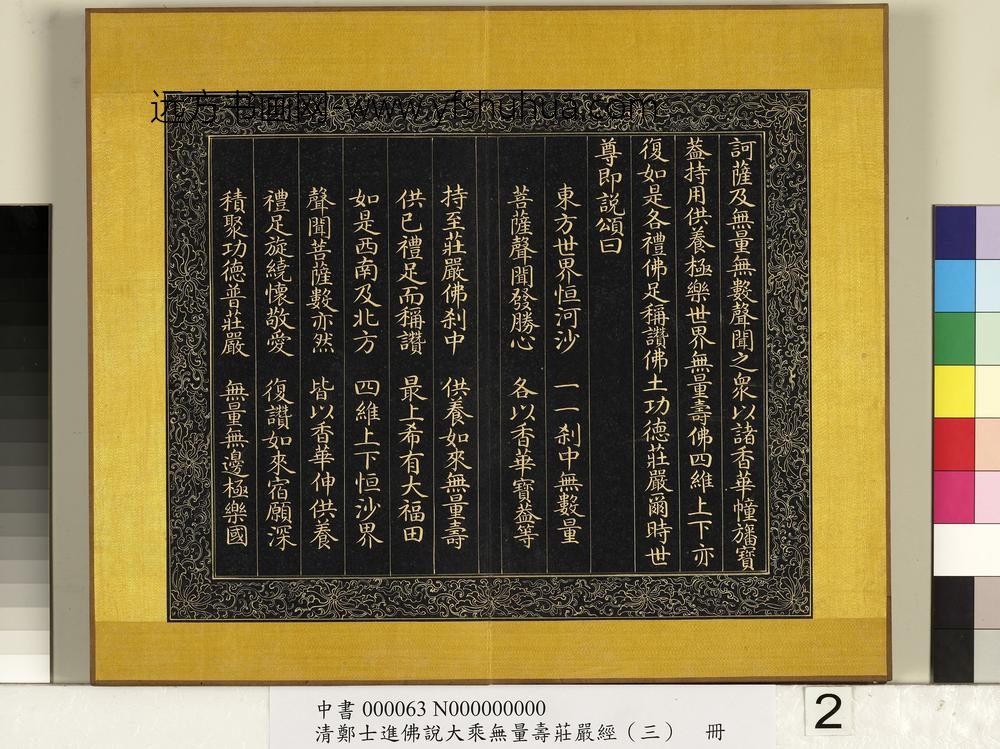 远方书画网 www.yfshuhua.com
訶薩及無量無數聲聞之眾以諸香華幢旛寶
葢持用供養極樂世界無量壽佛四維上下亦
復如是各禮佛足稱讚佛土功德莊嚴爾時世
尊即説頌曰
東方世界恒河沙 一一刹中無數量
菩薩聲聞發勝心 各以香華寶葢等
持至莊嚴佛刹中 供養如來無量壽
供已禮足而稱讚 最上希有大福田
如是西南及北方 四維上下恒沙界
聲聞菩薩數亦然 皆以香華伸供養
禮足旋繞懷敬愛 復讚如來宿願深
積聚功德普莊嚴 無量無邊極樂國
中書 000063 N000000000
清鄭士進佛說大乘無量壽莊嚴經（三） 冊
2